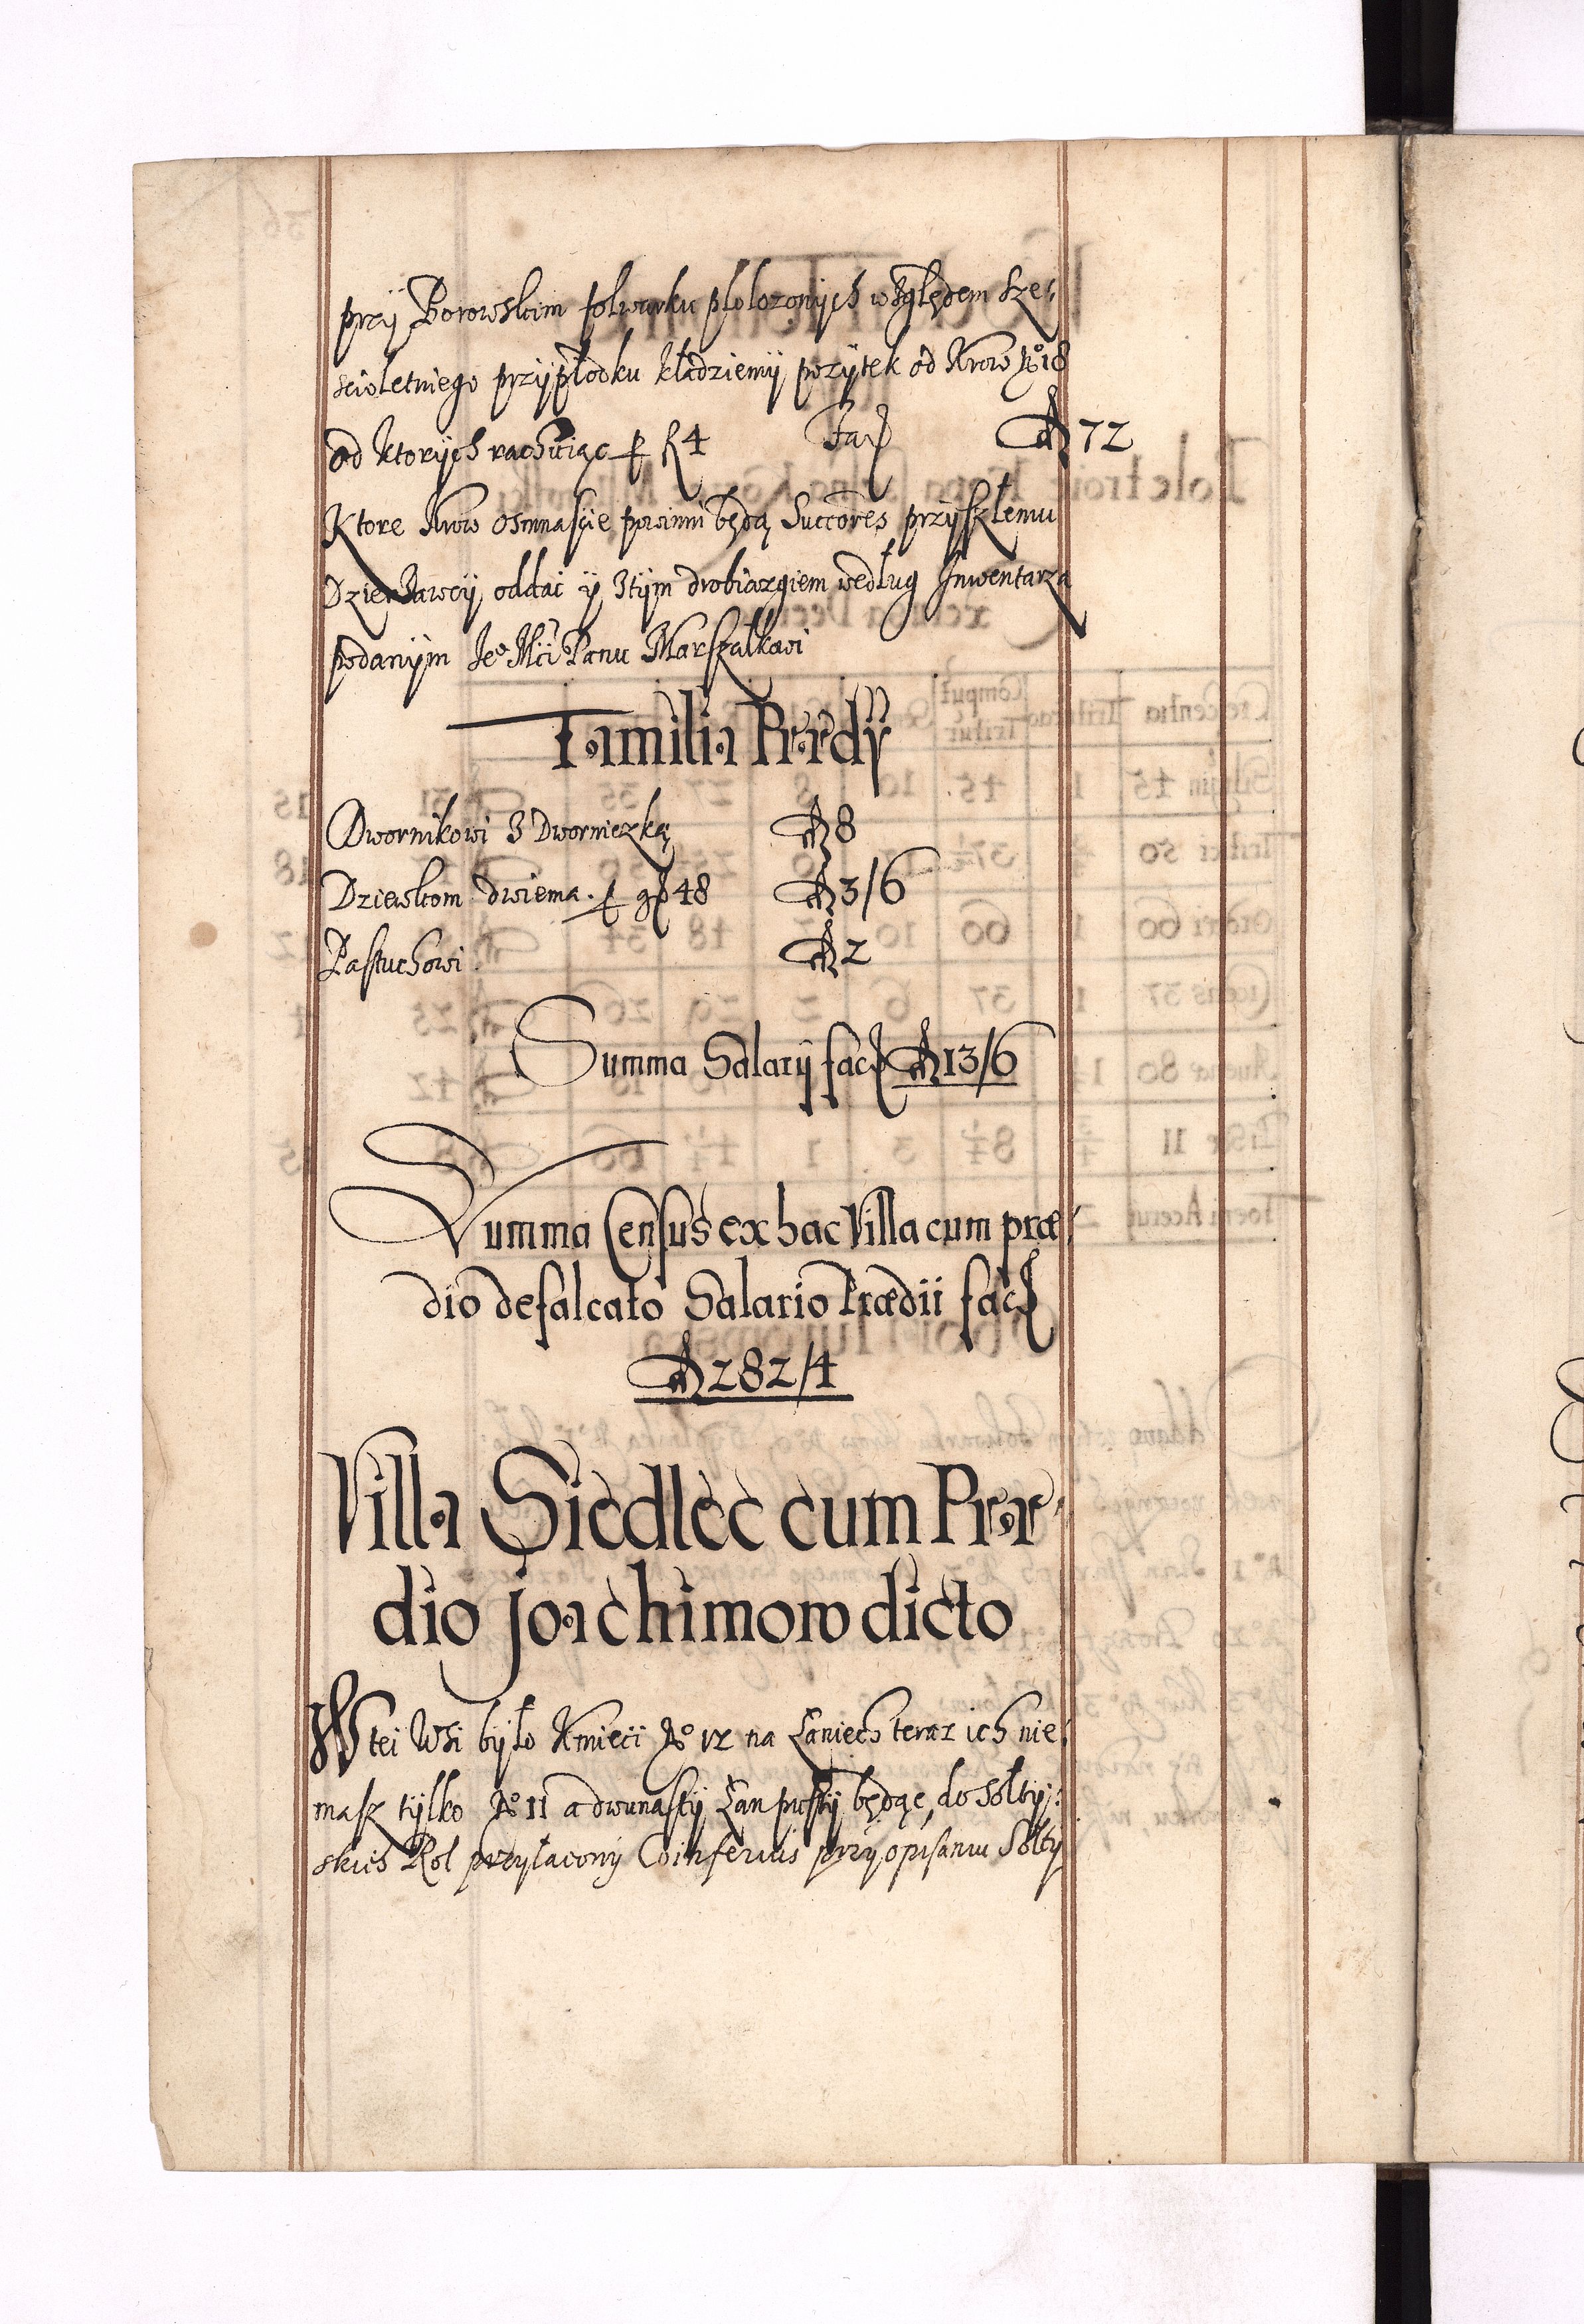 przÿ Borowskim folwarku plolozonÿch względem Sze:
scioletniego przÿpłodku kładziemÿ pozÿtek od Krow No 18
od ktorÿch rachuiąc p. f 4 Facit 72
Ktore Krow osmnascie powinni będą Succores przÿszłemu
Dzierzawcÿ oddac ÿ ztÿm drobiazgiem według Inwentarza
podanÿm Jeo Mci Panu Marszałkowi
Familia Prædÿ
Dwornikowi z Dworniczką 8
Dziewkom dwiema. p. gr 48 3/6
Pastuchowi 2
Summa Salarÿ facit 13/6
Summa Census ex hac Villa cum præ
dio defalcato Salario Prædii facit
282/4
Villa Siedlec cum Præ
dio Joachimow dicto
W tei Wsi było Kmieci No 12 na Łaniech teraz ich nie:
masz tÿlko No 11 a dwunastÿ Łan pustÿ będąc, do Sołtÿ:
skich Rol przyłaconÿ Co inferius przÿ opisaniu Sołtÿ